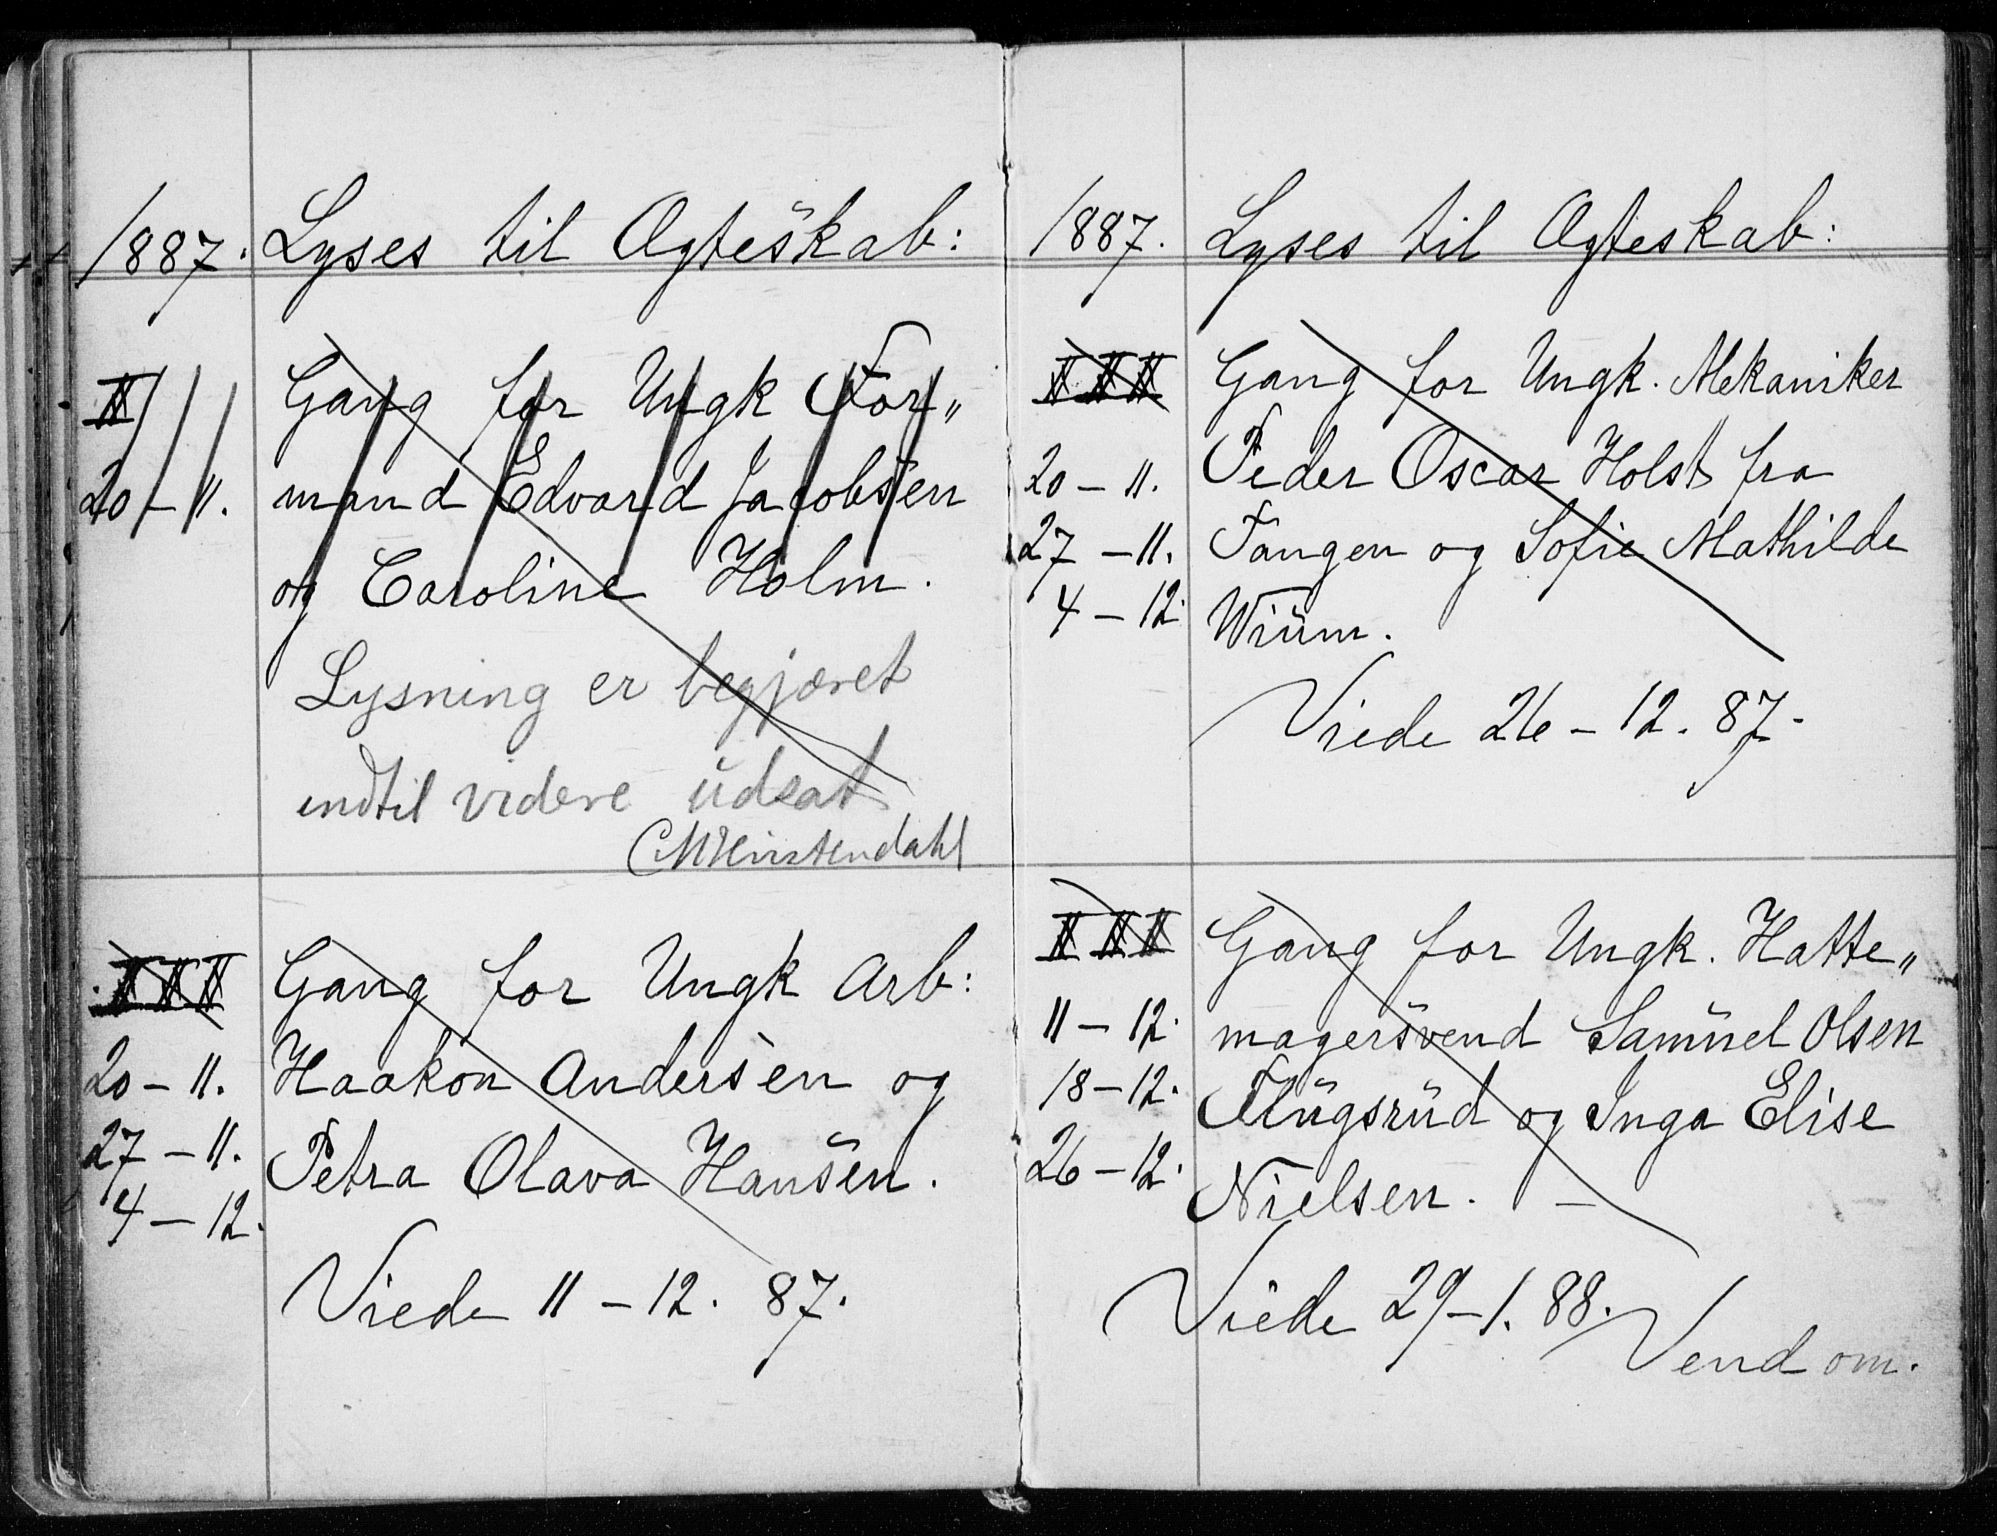 1887. Lyses til Ægteskab:
I Gang for Ungk For„
20 – 11. mand Edvard Jacobsen
og Caroline Holm.
Lysning er begjæret
indtil videre udsat
III Gang for Ungk Arb:
20 – 11. Haakon Andersen og
27 – 11. Petra Olava Hansen.
4 – 12.
Viede 11 – 12. 87.
1887. Lyses til Ægteskab:
III Gang for Ungk. Mekaniker
20 – 11. Peder Oscar Holst fra
27 – 11. Tangen og Sofie Mathilde
4 – 12. Wium.
Viede 26 – 12. 87.
III Gang for Ungk. Hatte„
11 – 12. magersvend Samuel Olsen
18 – 12. Flugsrud og Inga Elise
26 – 12. Nielsen. –
Viede 29 – 1. 88.
Vend om.